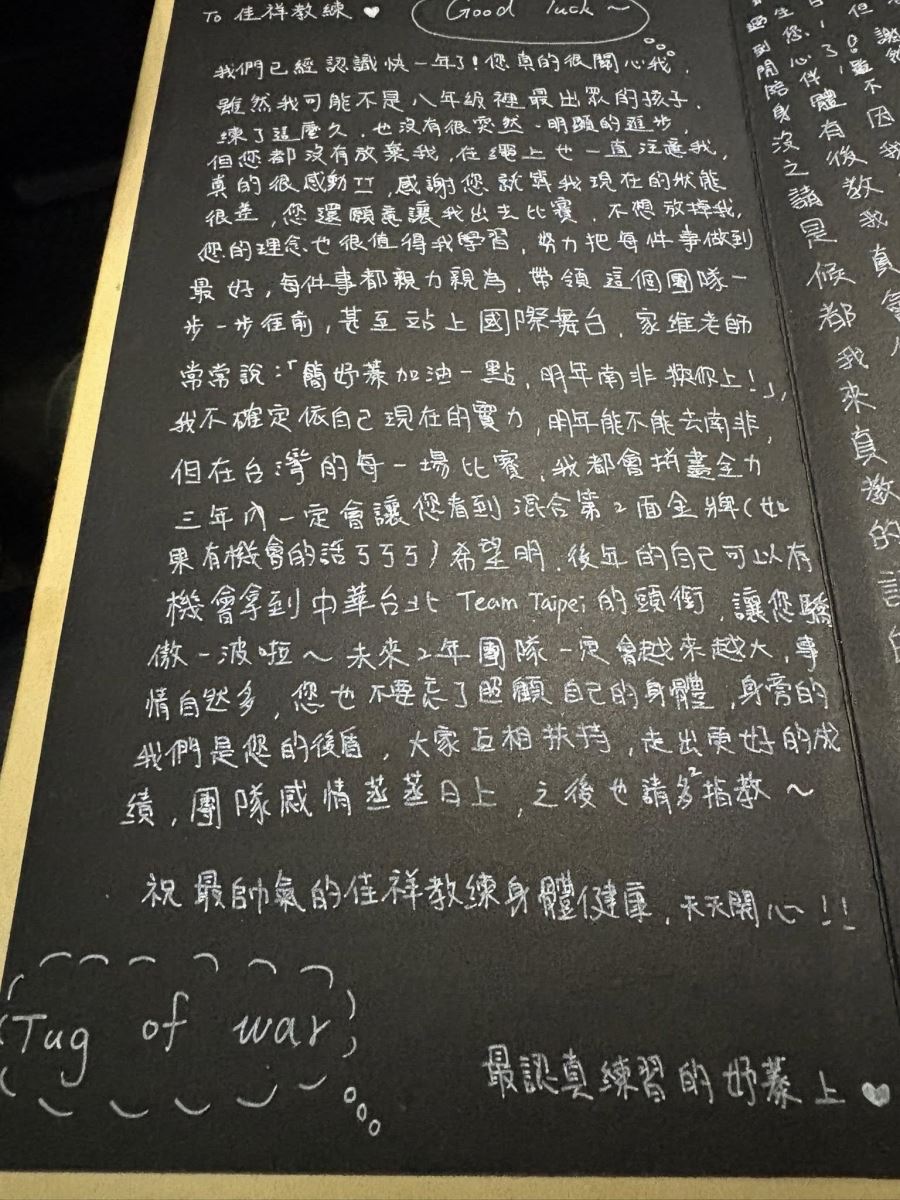 To 佳祥教練♥
Good luck~
我們已經認識快一年了!您真的很關心我,
雖然我可能不是八年級裡最出眾的孩子,
練了這麼久,也沒有很突然、明顯的進步,
但您都沒有放棄我,在繩上也一直注意我,
真的很感動TT,感謝您就算我現在的狀態
很差,您還願意讓我出去比賽,不想放掉我,
您的理念也很值得我學習,努力把每件事做到
最好,每件事都親力親為,帶領這個團隊一
步一步往前,甚至站上國際舞台,家維老師
常常說:「簡妤蓁加油一點,明年南非換你上!」,
我不確定依自己現在的實力,明年能不能去南非,
但在台灣的每一場比賽,我都會拼盡全力
三年內一定會讓您看到混合第2面金牌(如
果有機會的話ㄎㄎㄎ)希望明、後年的自己可以有
機會拿到中華台北 Team Taipei 的頭銜,讓您驕
傲一波啦~未來2年團隊一定會越來越大,事
情自然多,您也不要忘了照顧自己的身體,身旁的
我們是您的後盾,大家互相扶持,走出更好的成
績,團隊感情蒸蒸日上,之後也請多²指教~
祝最帥氣的佳祥教練身體健康,天天開心!!
Tug of war
最認真練習的妤蓁上♥